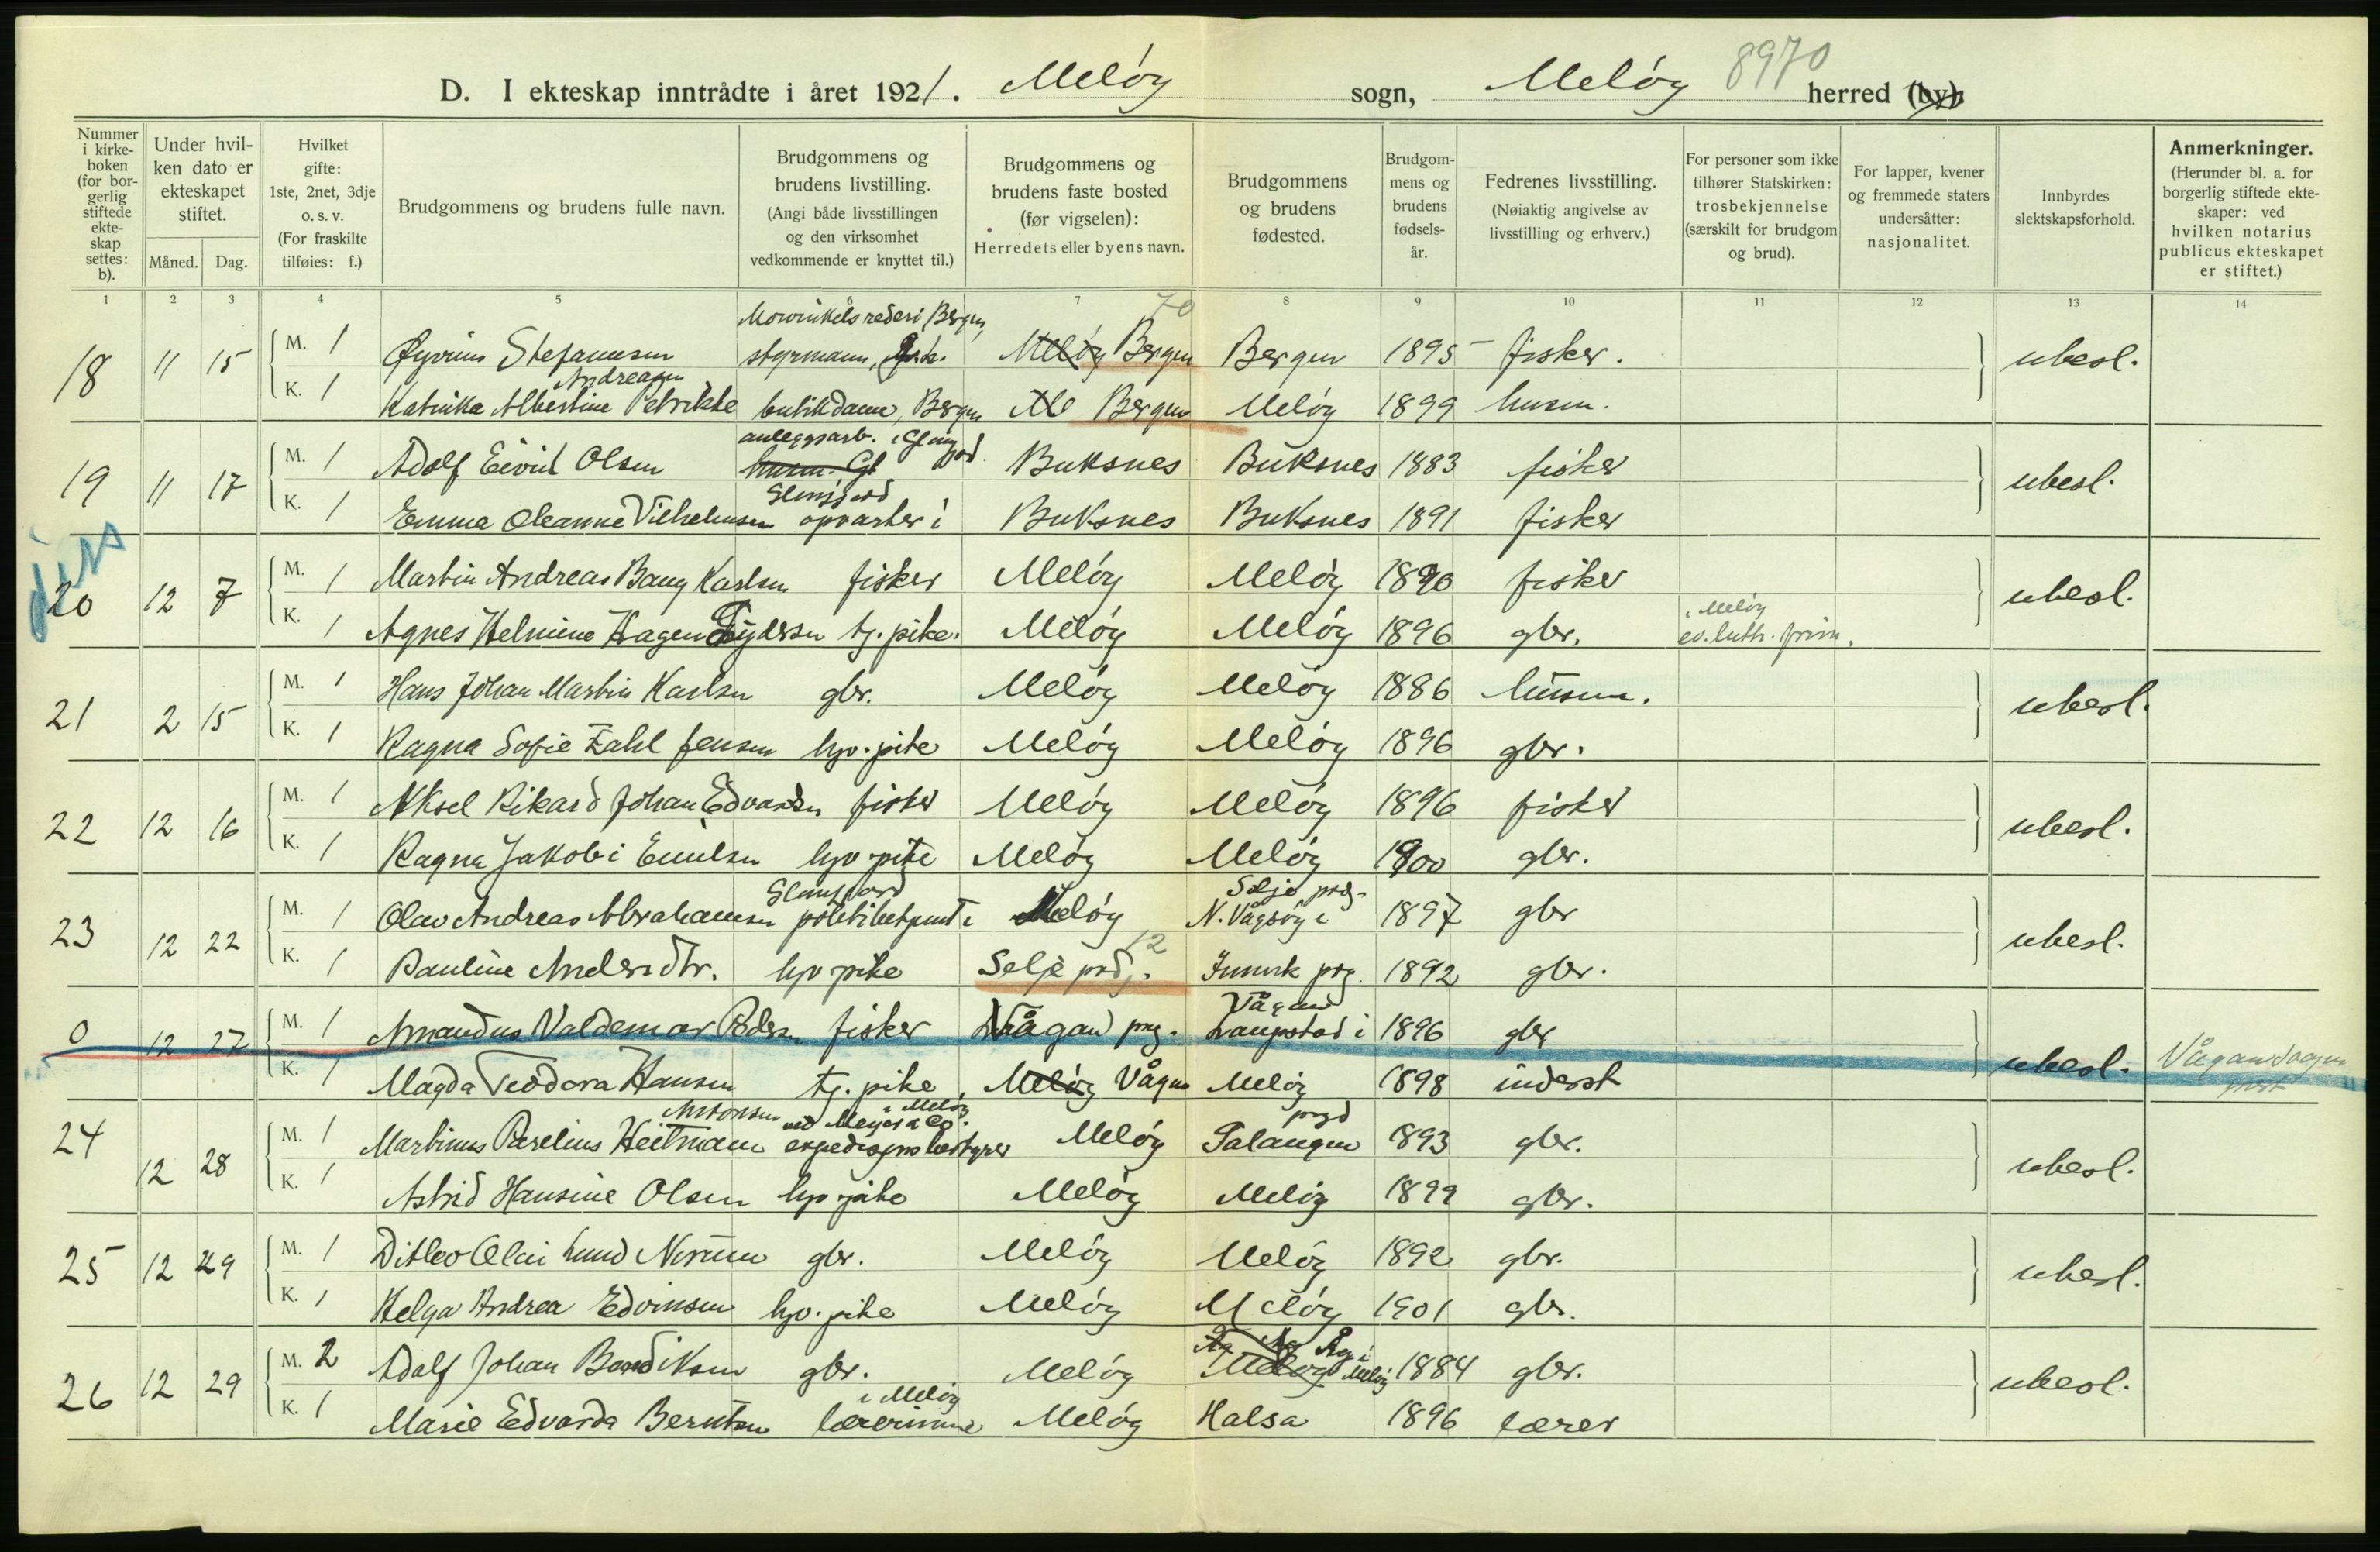 8970
D. I ekteskap inntrådte i året 1921. Meløy sogn, Meløy herred (by).
Nummer i kirkeboken (for borgerlig stiftede ekteskap settes: b).
Under hvilken dato er ekteskapet stiftet.
Måned. Dag.
Hvilket gifte: 1ste, 2net, 3dje o. s. v. (For fraskilte tilføies: f.)
Brudgommens og brudens fulle navn.
Brudgommens og brudens livstilling. (Angi både livsstillingen og den virksomhet vedkommende er knyttet til.)
Brudgommens og brudens faste bosted (før vigselen): Herredets eller byens navn.
Brudgommens og brudens fødested.
Brudgommens og brudens fødselsår.
Fedrenes livsstilling. (Nøiaktig angivelse av livsstilling og erhverv.)
For personer som ikke tilhører Statskirken: trosbekjennelse (særskilt for brudgom og brud).
For lapper, kvener og fremmede staters undersåtter: nasjonalitet.
Innbyrdes slektskapsforhold.
Anmerkninger. (Herunder bl. a. for borgerlig stiftede ekteskaper: ved hvilken notarius publicus ekteskapet er stiftet.)
1 2 3 4 5 6 7 8 9 10 11 12 13 14
Mowinkels rederi Bergen, 70
18 11 15 M. 1 Øyvinn Stefanusen styrmann, Meløy Bergen Bergen 1895 fisker. ubesl.
Andreasen
K. 1 Katinka Albertine Petrikke butikdame, Bergen Bergen Meløy 1899 husm.
anleggsarb. i Glomfjord
19 11 17 M. 1 Adolf Eivind Olsen husm. Gl Buksnes Buksnes 1883 fisker ubesl.
Glomfjord
K. 1 Emma Oleanne Vilhelmsen opvarter i Buksnes Buksnes 1891 fisker
20 12 7 M. 1 Martin Andreas Bang Karlsen fisker Meløy Meløy 1890 fisker ubesl.
i Meløy
K. 1 Agnes Helmine Hagen Fydersen tj. pike. Meløy Meløy 1896 gbr. ev. luth. frim.
21 2 15 M. 1 Hans Johan Martin Karlsen gbr. Meløy Meløy 1886 husm. ubesl.
K. 1 Ragna Sofie Zahl Jensen hjv. pike Meløy Meløy 1896 gbr.
22 12 16 M. 1 Aksel Rikard Johan Edvardsen fisker Meløy Meløy 1896 fisker ubesl.
K. 1 Ragna Jakobi Emilsen hjv. pike Meløy Meløy 1900 gbr.
Glomfjord Selje prg.
23 12 22 M. 1 Olav Andreas Abrahamsen politibetjent i Meløy N. Vågsøy i 1897 gbr ubesl.
12
K. 1 Pauline Andersdtr. hjv. pike Selje prdj. Innvik prg. 1892 gbr.
Vågan
0 12 27 M. 1 Amandus Valdemar Pedersen fisker Vågan prg. Laupstad i 1896 gbr ubesl. Vågan sogn
K. 1 Magda Teodora Hansen tj. pike Meløy Vågan Meløy 1898 inderst
Antonsen ved Meyer & Co. i Meløy prgd
24 12 28 M. 1 Martinus Parelius Heitmann expedisjonsbestyrer Meløy Salangen 1893 gbr. ubesl.
K. 1 Astrid Hansine Olsen hjv. pike Meløy Meløy 1899 gbr.
25 12 29 M. 1 Ditlev Olai Lund Nerum gbr. Meløy Meløy 1892 gbr. ubesl.
K. 1 Helga Andrea Edvinsen hjv. pike Meløy Meløy 1901 gbr.
26 12 29 M. 2 Adolf Johan Bendiksen gbr. Meløy Meløy Åg i Meløy 1884 gbr. ubesl.
i Meløy
K. 1 Marie Edvarda Berntsen lærerinne Meløy Halsa 1896 lærer